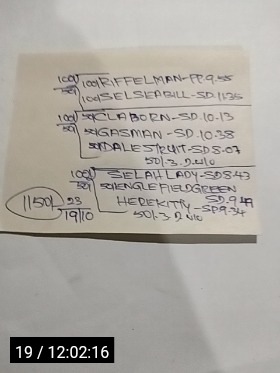 100 100 RIFFELMAN - PP 9.55
50 100 SELSEABILL - SD. 11.35
100 50 CLABORN - SD. 10.13
50 50 GASMAN - SD. 10.38
50 DALESTRUIT - SD 8.07
50/- 3. D 4/10
100 SELAH LADY - SD 8.43
50 ENGLEFIELDGREEN
SD. 9.
HEREKITTY - SD 9.34
50/- 3. D 4/10
1150/- 23
19/10
19 / 12:02:16